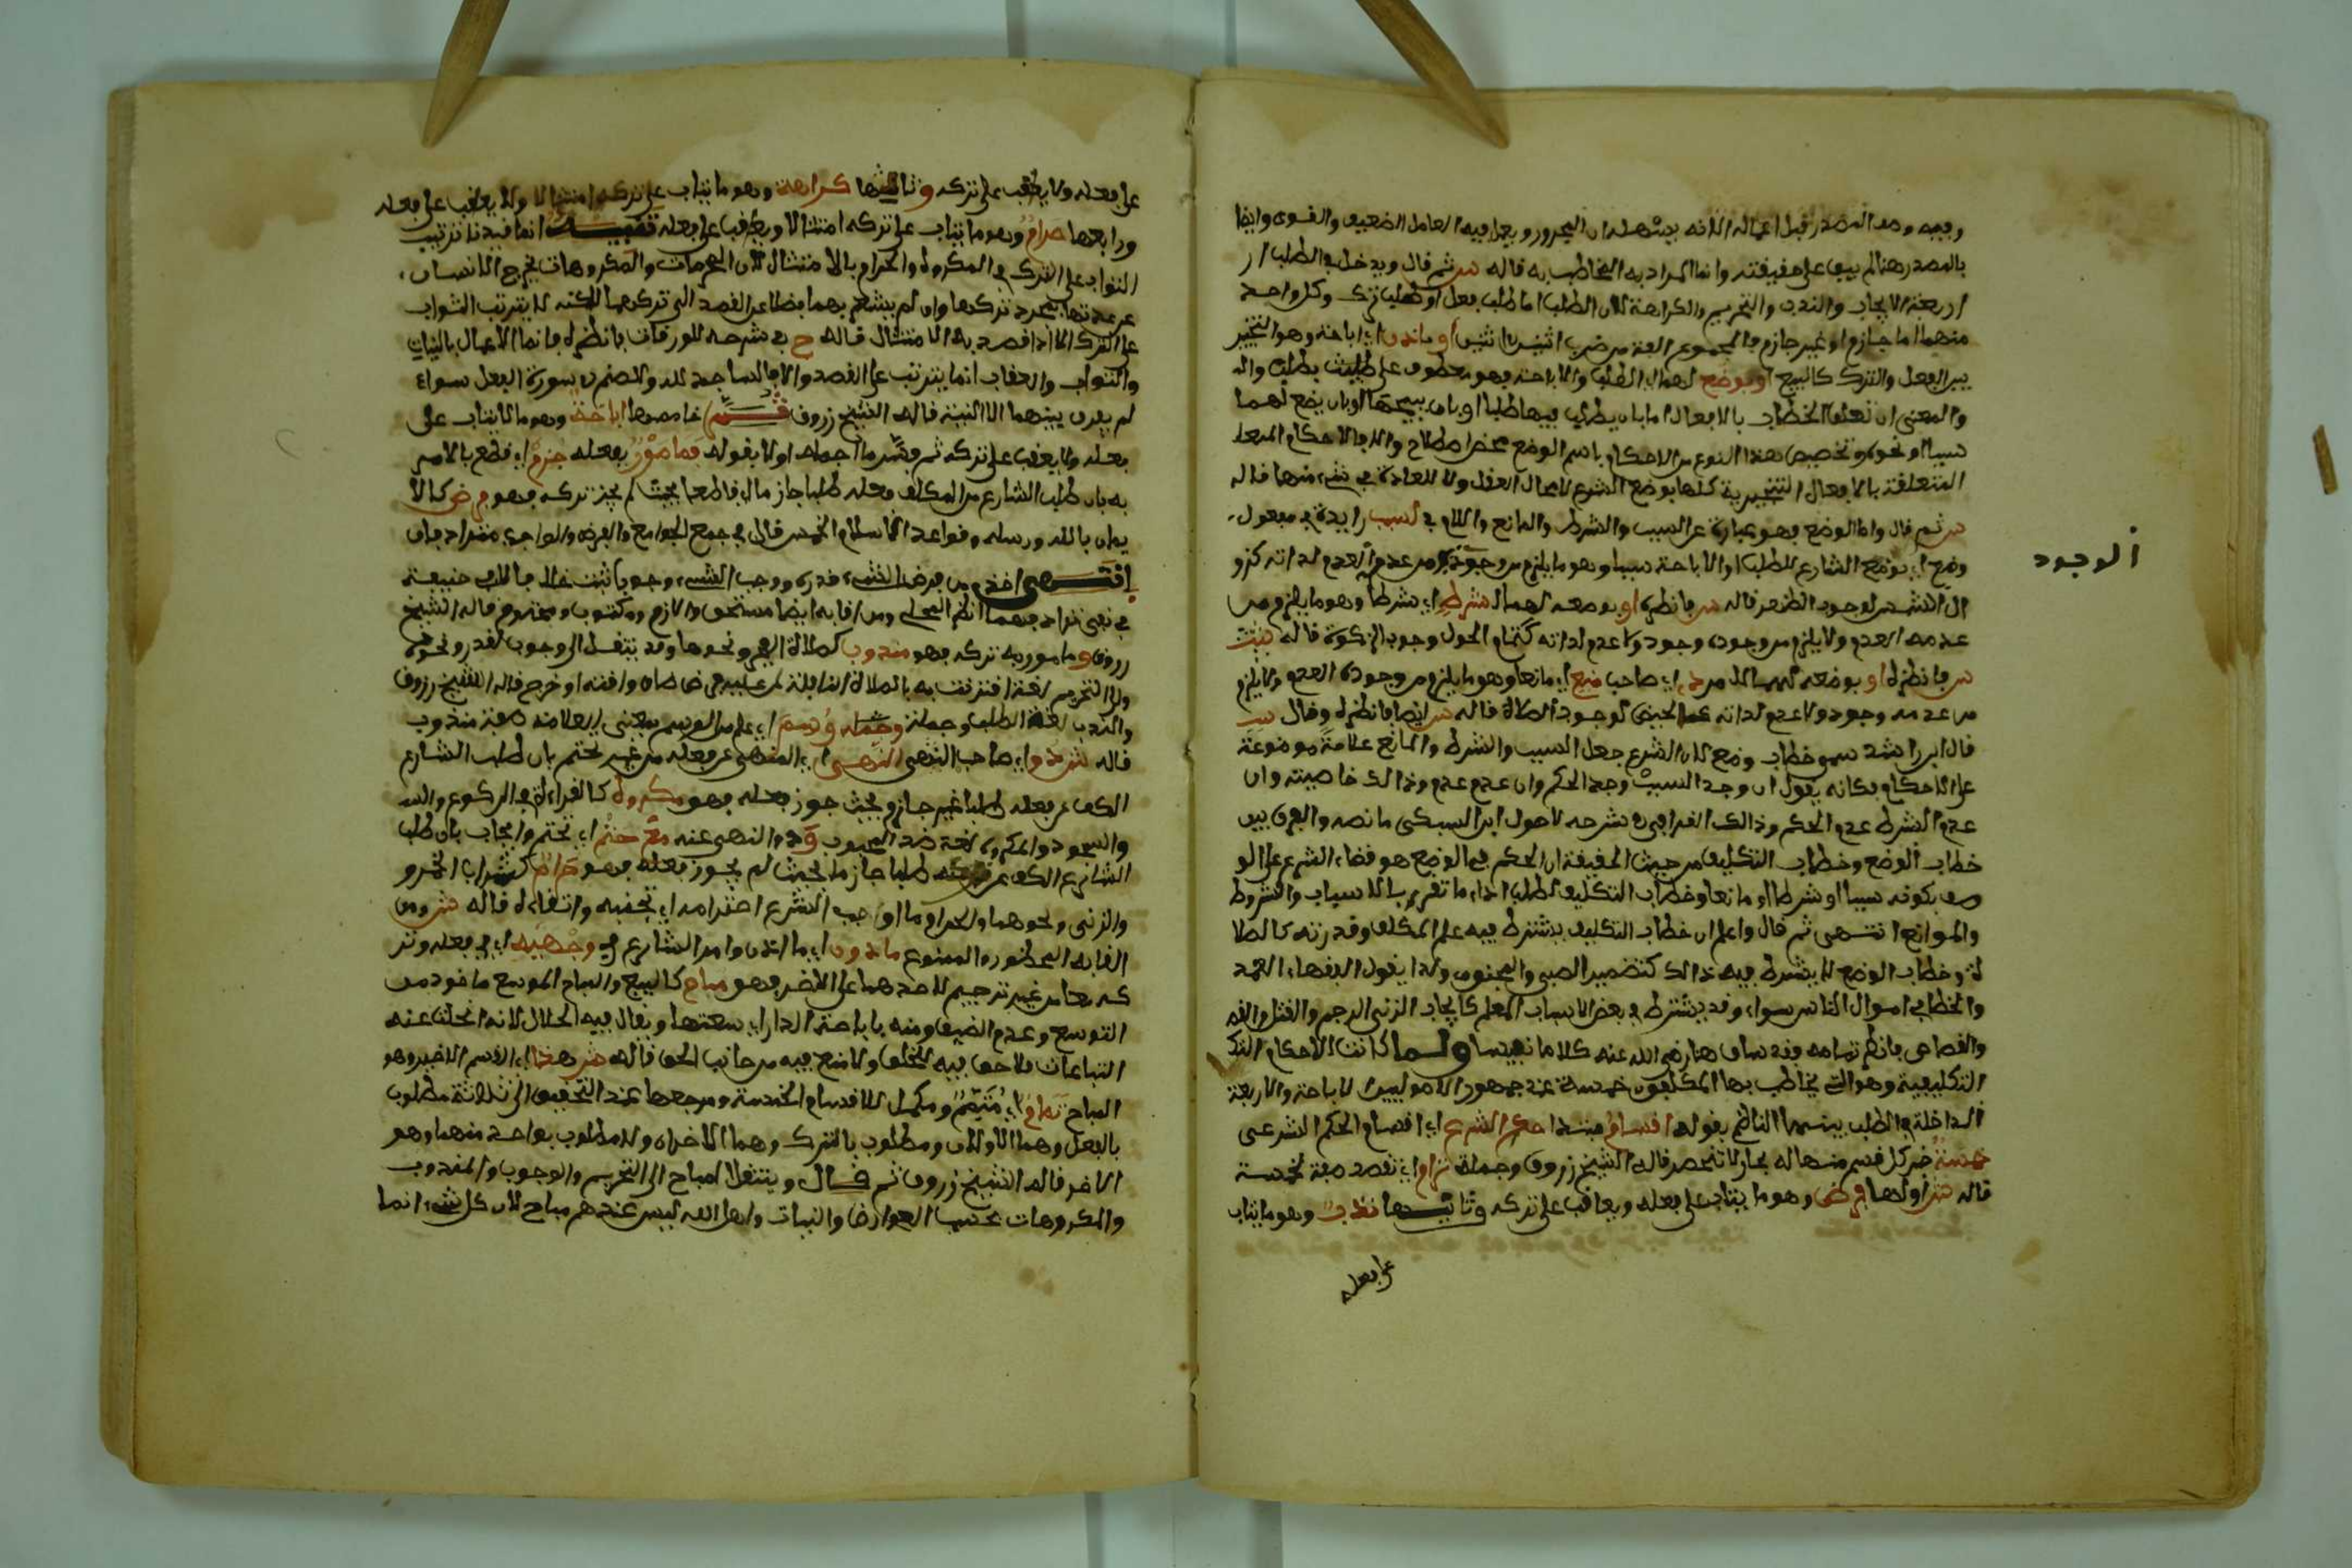 وفيه وصف المصدر قبل اعماله لانه يشهد له ان المجرور ويعمل فيه العامل الضعيف والقوي وايضا
بالمصدر هنا لم يبق على حقيقته وانما المراد به المخاطب به قاله ش ثم قال ويدخل في الطلب ار
اربعة الايجاب والندب والتحريم والكراهة لان الطلب اما طلب فعل او طلب ترك وكل واحد
منهما اما جازم او غير جازم فالمجموع اربعة من ضرب اثنين في اثنين او باذن اي اباحة وهو التخيير
بين الفعل والترك كالبيع او بوضع لهما اي الطلب والاباحة فهو معطوف على طلب
والمعنى ان تعلق الخطاب بالافعال اما بان يطلب فيها طلبا او بان يبيحها او بان يضع لهما
سببا او نحوه وتخصيص هذا النوع من الاحكام باسم الوضع محض اصطلاح والا فالاحكام
المتعلقة بالافعال التنجيزية كلها بوضع الشرع لا مجال للعقل ولا للعادة في شيء منها قاله
ش ثم قال واما الوضع فهو عبارة عن السبب والشرط والمانع واللام في لسبب زايدة في مفعول
وضع اي بوضع الشارع للطلب او الاباحة سببا وهو ما يلزم من وجوده الوجود ومن عدمه العدم لذاته كزو
ال الشمس لوجوب الظهر قاله ش فانظره او بوضعه لهما الشرط اي شرطا وهو ما يلزم من
عدمه العدم ولا يلزم من وجوده وجود ولا عدم لذاته كتمام الحول وجوب الزكوة قاله
ش فانظره او بوضعه لهما اي صاحب منع اي مانعا وهو ما يلزم من وجوده العدم ولا يلزم
من عدمه وجود ولا عدم لذاته كالحيض لوجوب الصلاة قاله ش ايضا فانظره وقال
قال ابن راشد سمي خطاب وضع لان الشرع جعل السبب والشرط والمانع علامة موضوعة
على الاحكام فكانه يقول ان وجد السبب وجد الحكم وان عدم عدم وذالك خاصيته وان
عدم الشرط عدم الحكم وذالك القرافي في شرحه لاصول ابن السبكي ما نصه والفرق بين
خطاب الوضع وخطاب التكليف من حيث الحقيقة ان الحكم في الوضع هو قضاء الشرع على الو
صف بكونه سببا او شرطا او مانعا وخطاب التكليف لطلب اداء ما تقرر بالاسباب والشروط
والموانع انتهى ثم قال واعلم ان خطاب التكليف يشترط فيه علم المكلف وقدرته كالصلا
ة وخطاب الوضع لا يشترط فيه ذالك كتضمين الصبي والمجنون ولذا يقول الفقهاء العمد
والخطا في اموال الناس سواء وقد يشترط في بعض الاسباب العلم كايجاب الزنى الرجم والقتل
والقصاص فانظر تمامه وقد ساق هنا رضي الله عنه كلاما نفيسا ولما كانت الاحكام
التكليفية وهو التي يخاطب بها المكلفون خمسة عند جمهور الاصوليين الاباحة والاربعة
الداخلة في الطلب بينهما الناظم بقوله اقسام مبتدا حكم الشرع اي اقسام الحكم الشرعي
خمسة خبر كل قسم منها له مجار لا تنحصر قاله الشيخ زروق وجملة ترام اي تقصد صفة لخمسة
قاله ش اولها فرض وهو ما يثاب على فعله ويعاقب على تركه وثانيها ندب وهو ما يثاب
على فعله
الوجود
على فعله ولا يعاقب على تركه وثالثها كراهة وهو ما يثاب على تركه امتثالا ولا يعاقب على فعله
ورابعها حرام وهو ما يثاب على تركه امتثالا ويعاقب على فعله تنبيه انما قيدنا ترتيب
الثواب على الترك في المكروه والحرام بالامتثال لان المحرمات والمكروهات يخرج الانسان
عن عهدتها بمجرد تركها وان لم يشعر بها فضلا عن القصد الى تركها لكنه لا يترتب الثواب
على الترك الا اذا قصد به الامتثال قاله ح في شرحه للورقات فانظره فانما الاعمال بالنيات
والثواب والعقاب انما يترتب على القصد والا فالساجد لله وللصنم في صورة الفعل سواء
لم يفرق بينهما الا النية قاله الشيخ زروق ثم خامسها اباحة وهو ما لا يثاب على
فعله ولا يعاقب على تركه ثم فسر ما اجمله اولا بقوله فمامور بفعله جزم اي قطع بالامر
به بان طلب الشارع من المكلف فعله طلبا جازما اي قاطعا بحيث لم يجز تركه فهو فرض كالا
يمان بالله ورسله وقواعد الاسلام الخمس قال في جمع الجوامع والفرض والواجب مترادفان
انتهى اخذا من فرض الشيء قدره ووجب الشيء وجوبا ثبت خلافا لابي حنيفة
في نفي ترادفهما انظر المحلى ومن القابه ايضا مستحق ولازم ومكتوب ومحتوم قاله الشيخ
زروق ومامور به تركه فهو مندوب كصلاة الفجر ونحوها وقد ينتقل الى وجوب لعذر ونحوه
والندب لغة الطلب وجملة وسم اي علم من الوسم بمعنى العلامة صفة مندوب
قاله ش ذو اي صاحب النهي اي المنهي عن فعله من غير تحتم بان طلب الشارع
الكف عن فعله طلبا غير جازم بحيث جوز فعله فهو مكروه كالقراءة في الركوع
والسجود والمكروه لغة ضد المحبوب وذو النهي عنه مع حتم اي تحتم وايجاب بان طلب
الشارع الكف عن فعله طلبا جازما بحيث لم يجوز فعله فهو حرام كشراب الخمر و
والزنى ونحوهما والحرام ما اوجب الشرع احترامه اي تجنبه واتقاءه قاله ش ومن
القابه المحظور والممنوع ماذون اي ما اذن وامر الشارع في وجهيه اي في فعله وتر
كه معا من غير ترجيح لاحدهما على الاخر فهو مباح كالبيع والمباح الموسع ماخوذ من
التوسع وعدم الضيق ومنه باباحة الدار اي سعتها ويقال فيه الحلال لانه انحلت عنه
التباعات فلا حق فيه للخلق ولا منع فيه من جانب الحق قاله ش هذا اي القسم الاخير وهو
المباح تمام اي متمم ومكمل للاقسام الخمسة ومرجعها عند التحقيق الى ثلاثة مطلوب
بالفعل وهما الاولان ومطلوب بالترك وهما الاخران ولا مطلوب بواحد منهما وهو
الاخر قاله الشيخ زروق ثم قال وينتقل المباح الى التحريم والوجوب والمندوب
والمكروهات بحسب العوارض والنيات واهل الله ليس عندهم مباح لان كل شيء انما